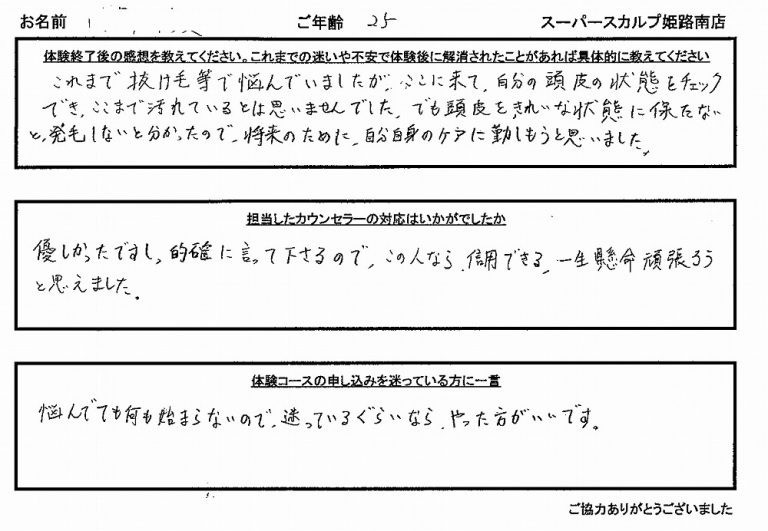 お名前 ご年齢 25 スーパースカルプ姫路南店
体験終了後の感想を教えてください。これまでの迷いや不安で体験後に解消されたことがあれば具体的に教えてください
これまで抜け毛等で悩んでいましたが、ここに来て、自分の頭皮の状態をチェック
でき、ここまで汚れているとは思いませんでした。でも頭皮をきれいな状態に保たない
と、発毛しないと分かったので、将来のために、自分自身のケアに勤しもうと思いました。
担当したカウンセラーの対応はいかがでしたか
優しかったですし、的確に言って下さるので、この人なら、信用できる、一生懸命頑張ろう
と思えました。
体験コースの申し込みを迷っている方に一言
悩んでても何も始まらないので、迷っているぐらいなら、やった方がいいです。
ご協力ありがとうございました